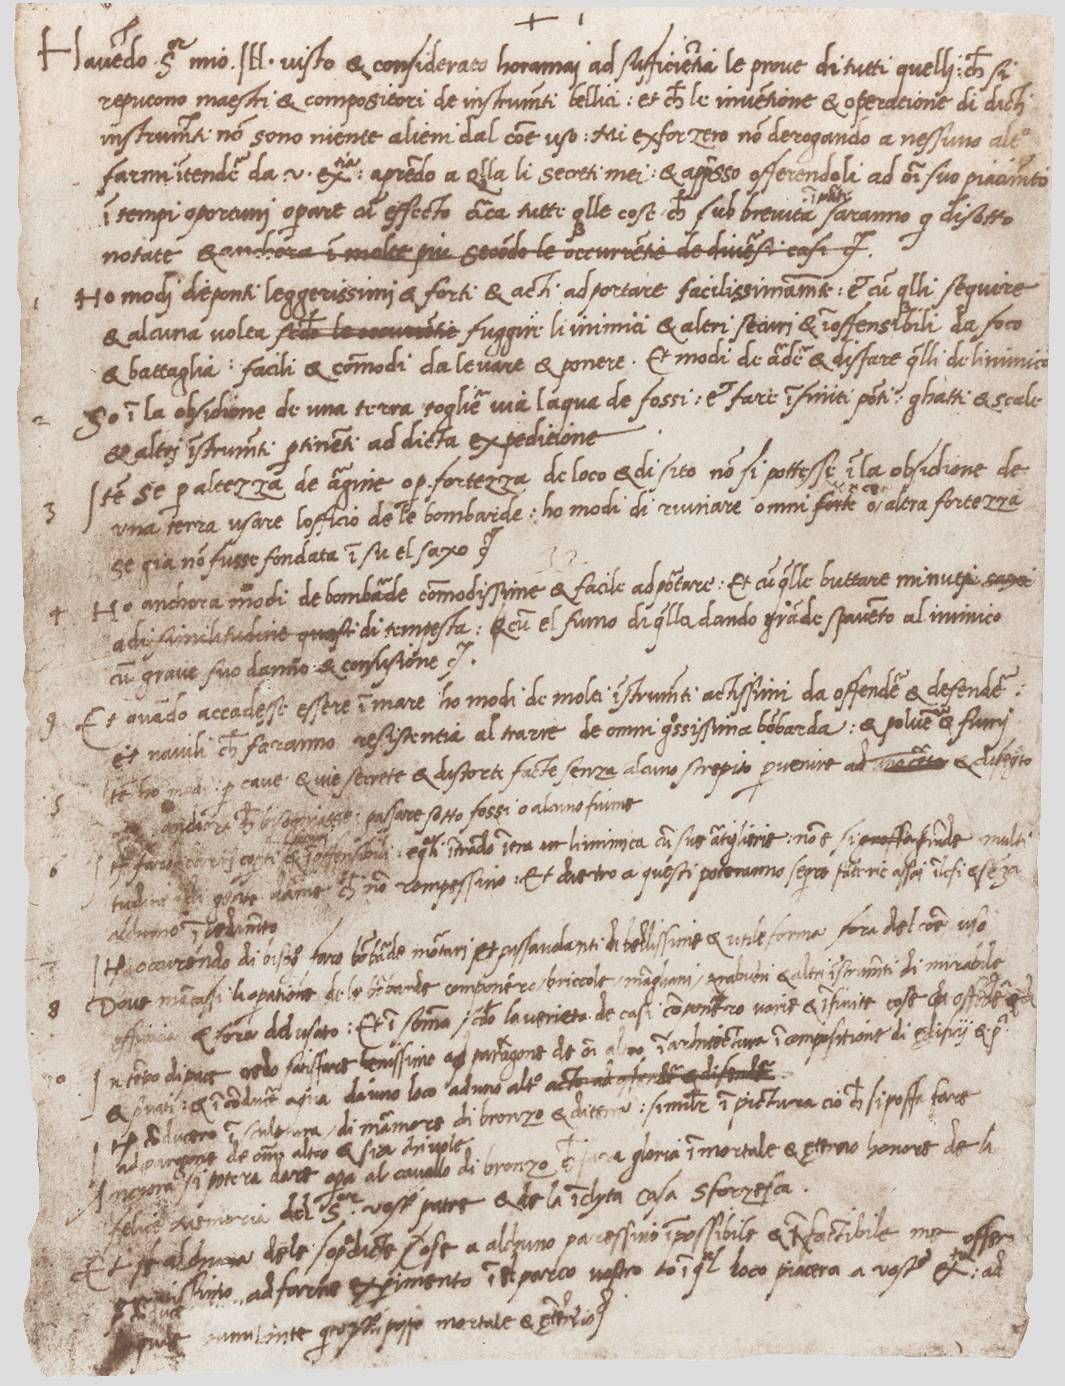 Havẽdo S.or mio Ill. visto & considerato horamai ad sufficiẽtia le prove di tutti quelli ch̃ si
reputono maestri & compositori de instrumẽti bellici: et ch̃ le invẽtione & operatione di dicti
instrumẽti nõ sono niente alieni dal cõe uso: Mi exforzero nõ derogando a nessuno alt.o
farmi ĩtendẽ da v. ex.tia: aprẽdo a q̃lla li secreti mei: & ap̃sso offerendoli ad oñi suo piacimẽto
ĩ tempi oportuni operare cũ effecto circa tutte q̃lle cose ch̃ sub brevita ĩ parte saranno qui disotto
notate & anchora ĩ molte piu secõdo le occurrentie de diversi casi
1 Ho modi de ponti leggerissimi & forti & acti ad portare facilissimamẽte: et cũ q̃lli sequire
& alcuna volta secõdo le occurrentie fuggire li inimici & altri securi & ĩoffensibili da foco
& battaglia: facili & cõmodi da levare & ponere. Et modi de ardẽ & disfare q̃lli de linimico
2 So ĩ la obsidione de una terra togliẽ via laqua de fossi: et fare ĩfiniti põti: ghatti & scale
& altri ĩstrumẽti p̃tinẽti ad dicta expeditione
3 Itẽ se p altezza de argine o p fortezza de loco & di sito nõ si pottesse ĩ la obsidione de
una terra usare lofficio de le bombarde: ho modi di ruinare omni forte o altra fortezza
se gia nõ fusse fondata ĩ su el saxo
4 Ho anchora modi de bombarde cõmodissime & facile ad portare: Et cũ q̃lle buttare minuti saxi
a di similitudine quasi di tempesta: & cũ el fumo di q̃lla dando grãde spavẽto al inimico
cũ grave suo danno & confusione
9 Et quãdo accadesse essere ĩ mare ho modi de molti ĩstrumẽti actissimi da offendẽ & defendẽ:
et navili ch̃ faranno resistentia al trarre de omni grossissima bõbarda: & polverẽ & fumi
5 Itẽ ho modi p cave & vie secrete & distorte facte senza alcuno strepito p venire ad & disegnato
ch̃ bisognasse passare sotto fossi o alcuno fiume
6 Itẽ faro carri coperti & ĩoffensibili: e quali ĩtrãdo ĩtra linimica cũ sue artiglierie: nõ e si grãde multi
tudine di gẽte darme ch̃ nõ rompessino: Et dietro a questi poteranno sequire fanterie assai illesi & sẽza
alchuno ĩpedimẽto
7 Itẽ occurrendo di bisogno faro bõbarde mortari et passavolanti di bellissime & utile forme fora del cõe uso
8 Dove mãcassi la operatione de le bõbarde componero briccole mãghani trabuchi & altri ĩstrumẽti di mirabile
efficacia & fora del usato: Et ĩ sõma secõdo la varieta de casi cõponero varie & ĩfinite cose da offendẽ & di
10 In tẽpo di pace credo satisfare benissimo ad paragone de oñi altro ĩ architectura ĩ compositione di edificii & p.
& privati: & ĩ cõducẽ aqua da uno loco ad uno alt.o acto ad offendẽ & difendẽ
Itẽ cõducero ĩ sculptura di marmore di bronzo & di terra: similẽ ĩ pictura cio ch̃ si possa fare
ad paragone de oñi altro & sia chi vole
Anchora si potera dare opera al cavallo di bronzo ch̃ sara gloria ĩmortale & eterno honore de la
felice memoria del S.or vostro patre & de la ĩclyta casa Sforzesca.
Et se alchuna de le sopradicte cose a alchuno paressino ĩpossibile & ĩfactibile me offero
paratissimo ad farne experimento ĩ el parco vostro o ĩ qual loco piacera a vostr. ex.tia: ad